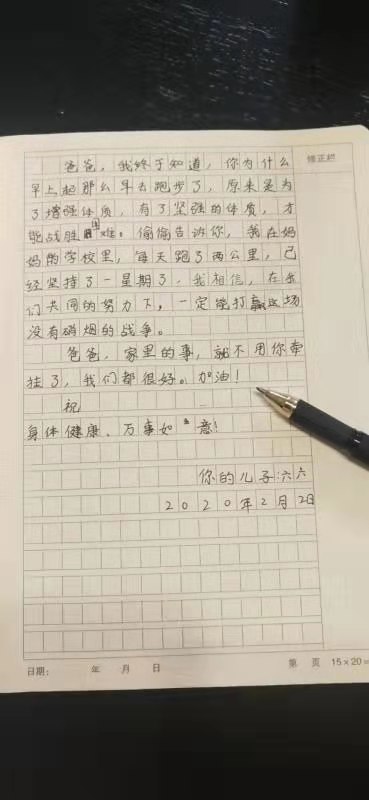 爸爸，我终于知道，你为什么
修正栏
早上起那么早去跑步了，原来是为
了增强体质，有了坚强的体质，才
能战胜困难。偷偷告诉你，我在妈
妈的学校里，每天跑了两公里，已
经坚持了一星期了，我相信，在我
们共同的努力下，一定能打赢这场
没有硝烟的战争。
爸爸，家里的事，就不用你牵
挂了，我们都很好。加油！
祝
身体健康、万事如意！
你的儿子：六六
2020年2月2日
日期： 年 月 日
第 页 15×20